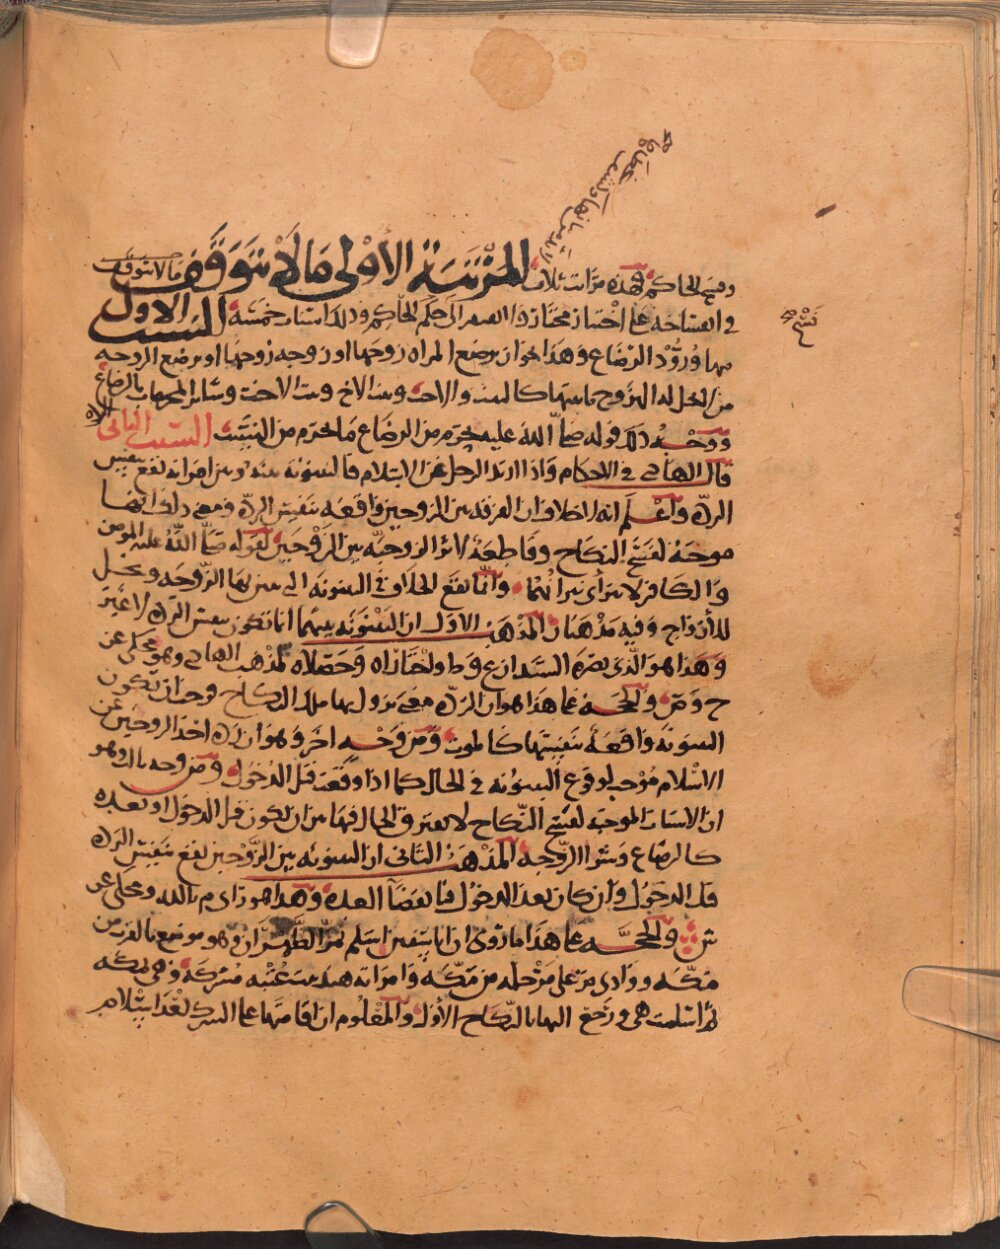 وفسخ الحاكم فهذه مراتب ثلاث المرتبة الأولى ما لا يتوقف ما لا يتوقف
في انفساخه على اختيار مختار ولا يفتقر الى حكم الحاكم وذلك اسباب خمسة السبب الاول
منها ورود الرضاع وهذا نحو ان ترضع المراه زوجها او زوجه زوجها او ترضع الزوجه
من لا يحل له التزوج بابنتها كالبنت والاخت وبنت الاخ وبنت الاخت وسائر المحرمات بالرضاع
ووجه ذلك قوله صلى الله عليه يحرم من الرضاع ما يحرم من النسب السبب الثاني
قال الهادي في الاحكام واذا ارتد الرجل عن الاسلام فالبينونه بينه وبين امراته تقع بنفس
الرده واعلم انه لا خلاف ان الفرقه بين الزوجين واقعه بنفس الرده ومعنى ذلك انها
موجبة لفسخ النكاح وقاطعة لاثر الزوجيه بين الزوجين لقوله صلى الله عليه المومن
والكافر لا تتراءى نيرانهما وانما يقع الخلاف في البينونه التي تبين بها الزوجه وتحل
للأزواج وفيه مذهبان المذهب الاول ان البينونه بينهما انما تكون بنفس الرده لا غير
وهذا هو الذي نصره السيدان ع و ط واختاراه وحصلاه لمذهب الهادي وهو محكي عن
ح و ص والحجه على هذا هو ان الرده معنى يزول بها ملك النكاح فوجب ان تكون
البينونه واقعة بنفسها كالموت ومن وجه اخر وهو ان رده احد الزوجين عن
الاسلام موجب لوقوع البينونه في الحال كما اذا وقعت قبل الدخول ومن وجه ثالث وهو
ان الاسباب الموجبه لفسخ النكاح لا يفترق الحال فيها من ان تكون قبل الدخول او بعده
كالرضاع وشراء الزوجه المذهب الثاني ان البينونه بين الزوجين تقع بنفس الرده
قبل الدخول وان كان بعد الدخول فبانقضاء العده وهذا هو راي م بالله ومحكي عن
ش والحجه على هذا ما روي ان ابا سفين اسلم بمر الظهران وهو موضع بالقرب من
مكه ووادي مر على مرحله من مكه وامراته هند بنت عتبه مشركة وهي بمكه
ثم اسلمت هي ورجع اليها بالنكاح الأول والمعلوم ان اقامتها على الشرك بعد اسلام